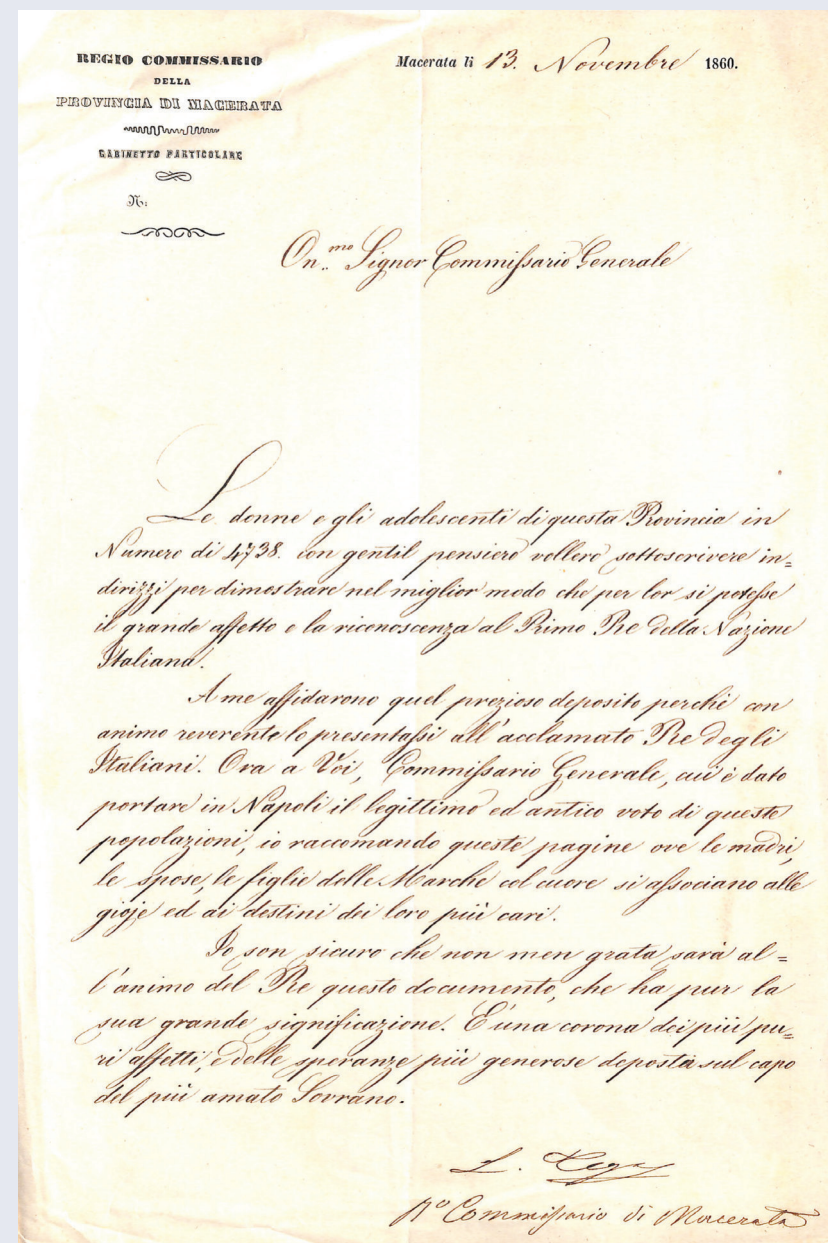 REGIO COMMISSARIO
DELLA
PROVINCIA DI MACERATA
GABINETTO PARTICOLARE
N.:
Macerata li 13. Novembre 1860.
On.mo Signor Commissario Generale
Le donne e gli adolescenti di questa Provincia in
Numero di 4738. con gentil pensiero vollero sottoscrivere in=
dirizzi per dimostrare nel miglior modo che per lor si potesse
il grande affetto e la riconoscenza al Primo Re della Nazione
Italiana.
A me affidarono quel prezioso deposito perchè con
animo reverente lo presentassi all'acclamato Re degli
Italiani. Ora a Voi, Commissario Generale, cui è dato
portare in Napoli il legittimo ed antico voto di queste
popolazioni, io raccomando queste pagine ove le madri,
le spose, le figlie delle Marche col cuore si associano alle
gioje ed ai destini dei loro più cari.
Io son sicuro che non men grata sarà al=
l'animo del Re questo documento, che ha pur la
sua grande significazione. È una corona dei più pu=
ri affetti, e delle speranze più generose deposta sul capo
del più amato Sovrano.
L.
Ro Commissario di Macerata